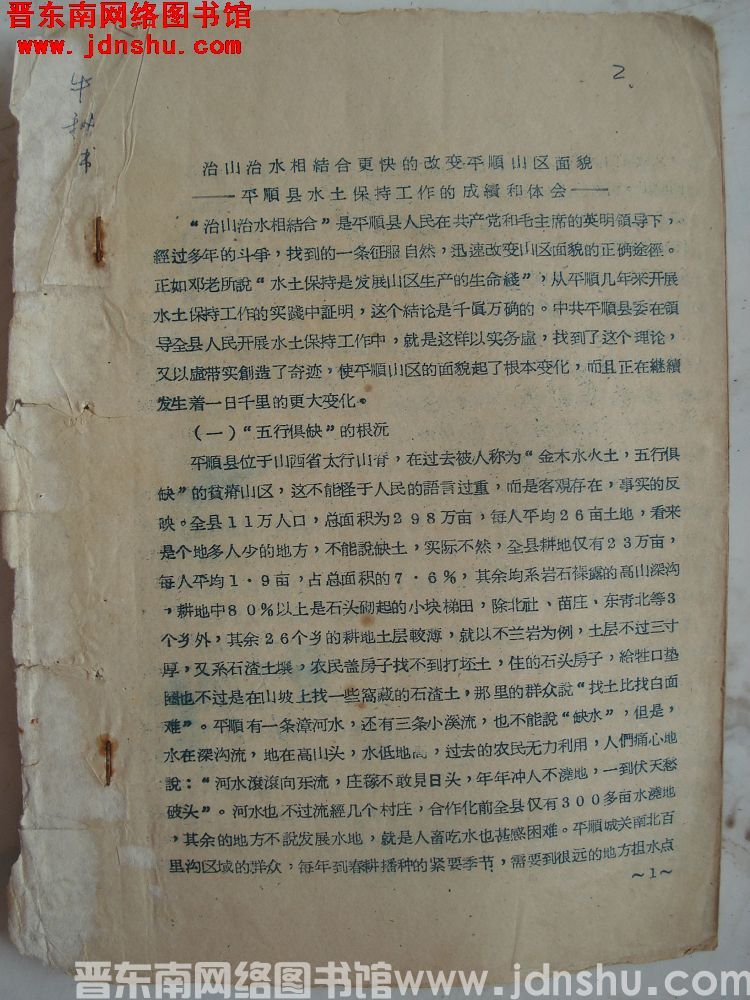 晋东南网络图书馆
www.jdnshu.com
2
治山治水相結合更快的改变平順山区面貌
——平順县水土保持工作的成績和体会——
“治山治水相結合”是平順县人民在共产党和毛主席的英明領导下，
經过多年的斗爭，找到的一条征服自然，迅速改变山区面貌的正确途徑。
正如邓老所說“水土保持是发展山区生产的生命綫”，从平順几年来开展
水土保持工作的实践中証明，这个結论是千眞万确的。中共平順县委在領
导全县人民开展水土保持工作中，就是这样以实务虛，找到了这个理论，
又以虛带实創造了奇迹，使平順山区的面貌起了根本变化，而且正在継續
发生着一日千里的更大变化。
（一）“五行俱缺”的根沅
平順县位于山西省太行山脊，在过去被人称为“金木水火土，五行俱
缺”的貧瘠山区，这不能怪于人民的語言过重，而是客观存在，事实的反
映。全县11万人口，总面积为298万亩，每人平均26亩土地，看来
是个地多人少的地方，不能說缺土，实际不然，全县耕地仅有23万亩，
每人平均1·9亩，占总面积的7·6％，其余均系岩石裸露的高山深沟
，耕地中80％以上是石头砌起的小块梯田，除北社、苗庄、东青北等3
个乡外，其余26个乡的耕地土层較薄，就以不兰岩为例，土层不过三寸
厚，又系石渣土壤，农民盖房子找不到打坯土，住的石头房子，給牲口垫
圈也不过是在山坡上找一些窩藏的石渣土，那里的群众說“找土比找白面
难”。平順有一条漳河水，还有三条小溪流，也不能說“缺水”，但是，
水在深沟流，地在高山头，水低地高，过去的农民无力利用，人們痛心地
說：“河水滾滾向东流，庄稼不敢見日头，年年冲人不澆地，一到伏天愁
破头”。河水也不过流經几个村庄，合作化前全县仅有300多亩水澆地
，其余的地方不說发展水地，就是人畜吃水也甚感困难。平順城关南北百
里沟区域的群众，每年到春耕播种的紧要季节，需要到很远的地方担水点
～1～
晋东南网络图书馆www.jdnshu.com